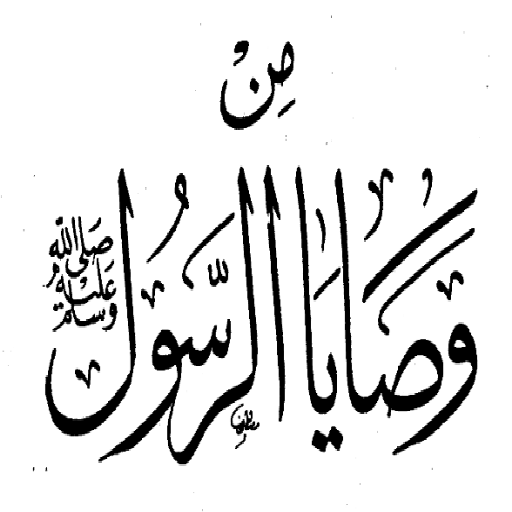 مِنْ
وَصَايَا الرَّسُولِ
صَلَى اللّه
عَلَيْهِ
وَسَلم